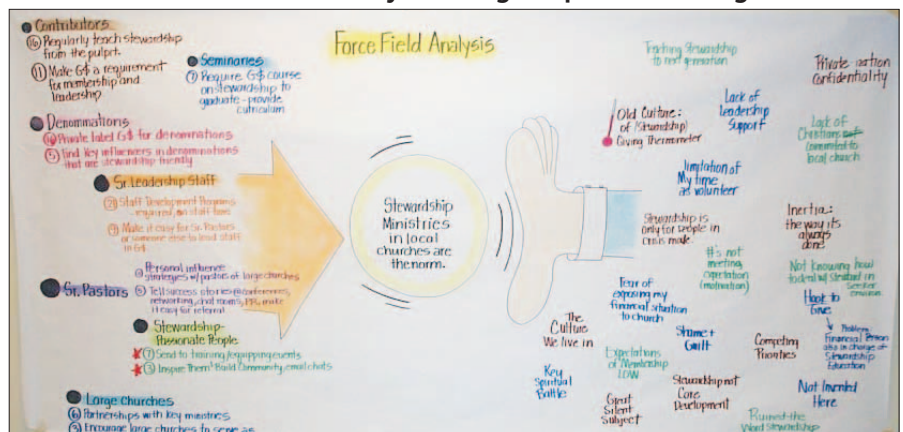 Force Field Analysis
Contributors
⑯ Regularly teach stewardship
from the pulpit.
⑪ Make G$ a requirement
for membership and
leadership
Seminaries
⑦ Require G$ course
on stewardship to
graduate - provide
curriculum
Denominations
Private label G$ for denominations
⑤ Find key influencers in denominations
that are stewardship friendly
Sr. Leadership Staff
Staff Development Programs
- required, on staff time
Make it easy for Sr. Pastors
or someone else to lead staff
in G$
Sr. Pastors
Personal influence
strategies w/ pastors of large churches
⑤ Tell success stories @ conferences,
networking, chat rooms, make
it easy for referral
Stewardship-
Passionate People
⑦ Send to training/equipping events
③ Inspire Them! Build Community, email chats
Large churches
⑥ Partnerships with key ministries
⑤ Encourage large churches to serve as
Stewardship
Ministries
in local
churches are
the norm.
Teaching Stewardship
to next generation
Private
Confidentiality
Old Culture:
of (Stewardship)
Giving Thermometer
Lack of
Leadership
Support
Lack of
Christians
committed to
local church
limitation of
My time
as volunteer
Stewardship is
only for people in
crisis mode.
Inertia:
the way it's
always
done
It's not
meeting
expectation
(motivation)
Not knowing how
to deal w/ steward in
Fear of
exposing my
financial situation
to church
to
Give
Problem:
Financial Person
also in charge of
Stewardship
Education
The
Culture
We live in
Shame +
Guilt
Competing
Priorities
Expectations
of Membership
LOW
Key
Spiritual
Battle
Stewardship not
Core
Development
Not Invented
Here
Great
Silent
Subject
Ruined the
Word Stewardship